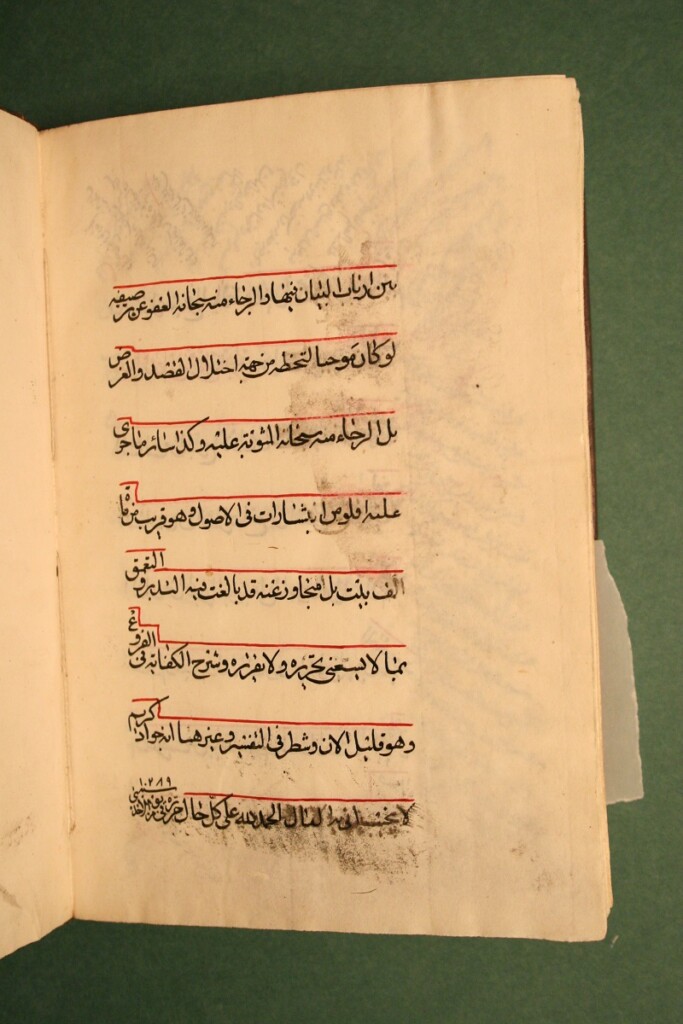 من ارباب البيان فيها والرجاء منه سبحانه العفو عن رصيفه
لو كان موجبا لتخطه من جهة اختلال القصد والغرض
بل الرجاء منه سبحانه المثوبة عليه وكذا سائر ما جرى
عليه اقلو من اشارات فى الاصول وهو قريب من مأة
الف بيت بل متجاوز عنه قد بالغت فيه التدبر والتعمق
بما لا يسعنى تحريره ولا تقريره وشرح الكفاية فى الفروع
وهو قليل الان وشطر فى التفسير وغيرهما انه جواد كريم
لا يخيب الحمد لله على كل حال